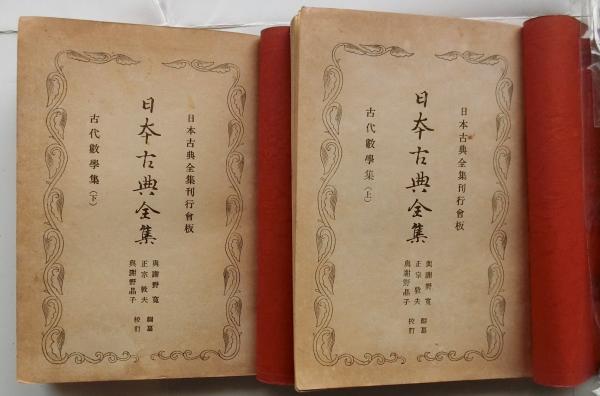 日本古典全集刊行會板
日本古典全集
與謝野 寛
正宗敦夫 編纂
與謝野晶子 校訂
古代數學集(下)
日本古典全集刊行會板
日本古典全集
與謝野 寛
正宗敦夫 編纂
與謝野晶子 校訂
古代數學集(上)